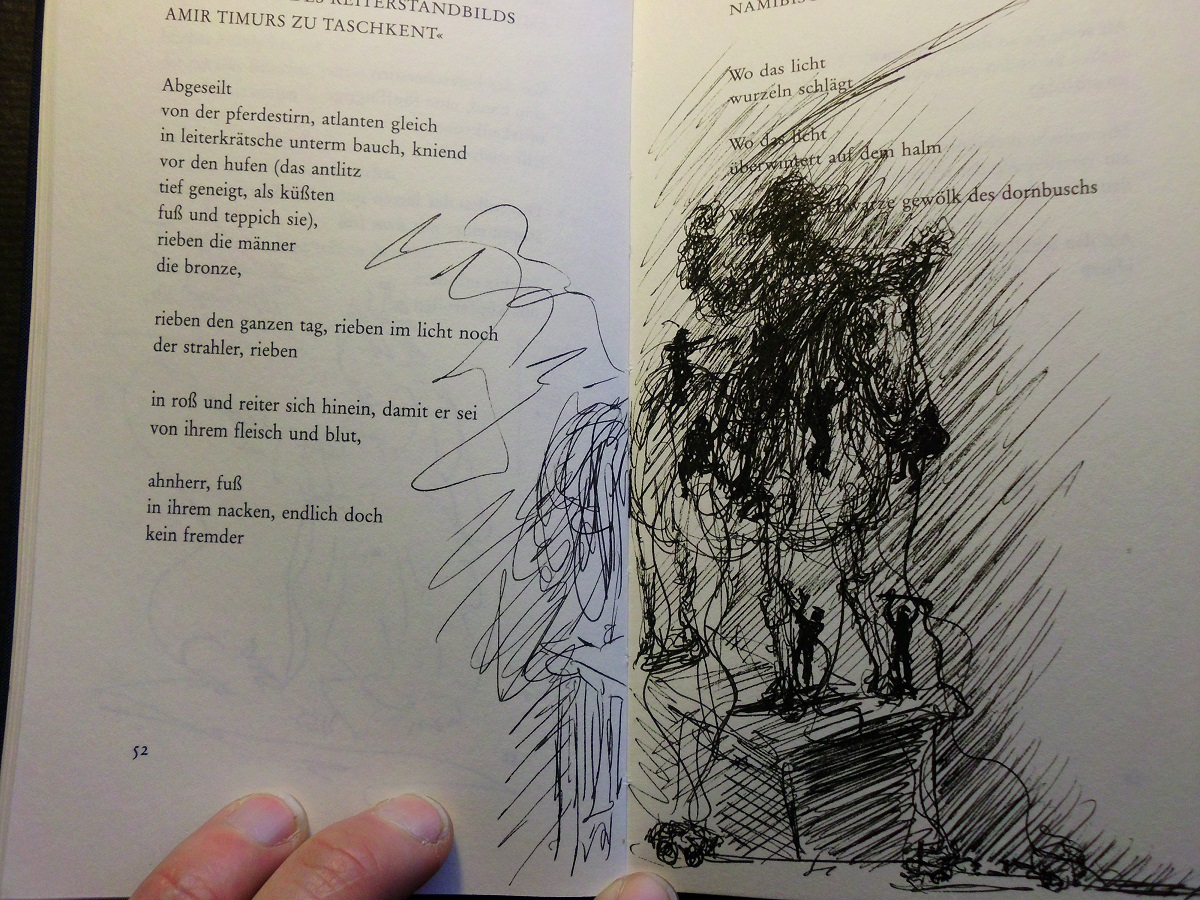 REITERSTANDBILDS
AMIR TIMURS ZU TASCHKENT«
Abgeseilt
von der pferdestirn, atlanten gleich
in leiterkrätsche unterm bauch, kniend
vor den hufen (das antlitz
tief geneigt, als küßten
fuß und teppich sie),
rieben die männer
die bronze,
rieben den ganzen tag, rieben im licht noch
der strahler, rieben
in roß und reiter sich hinein, damit er sei
von ihrem fleisch und blut,
ahnherr, fuß
in ihrem nacken, endlich doch
kein fremder
52
Wo das licht
wurzeln schlägt
Wo das licht
überwintert auf dem halm
gewölk des dornbuschs